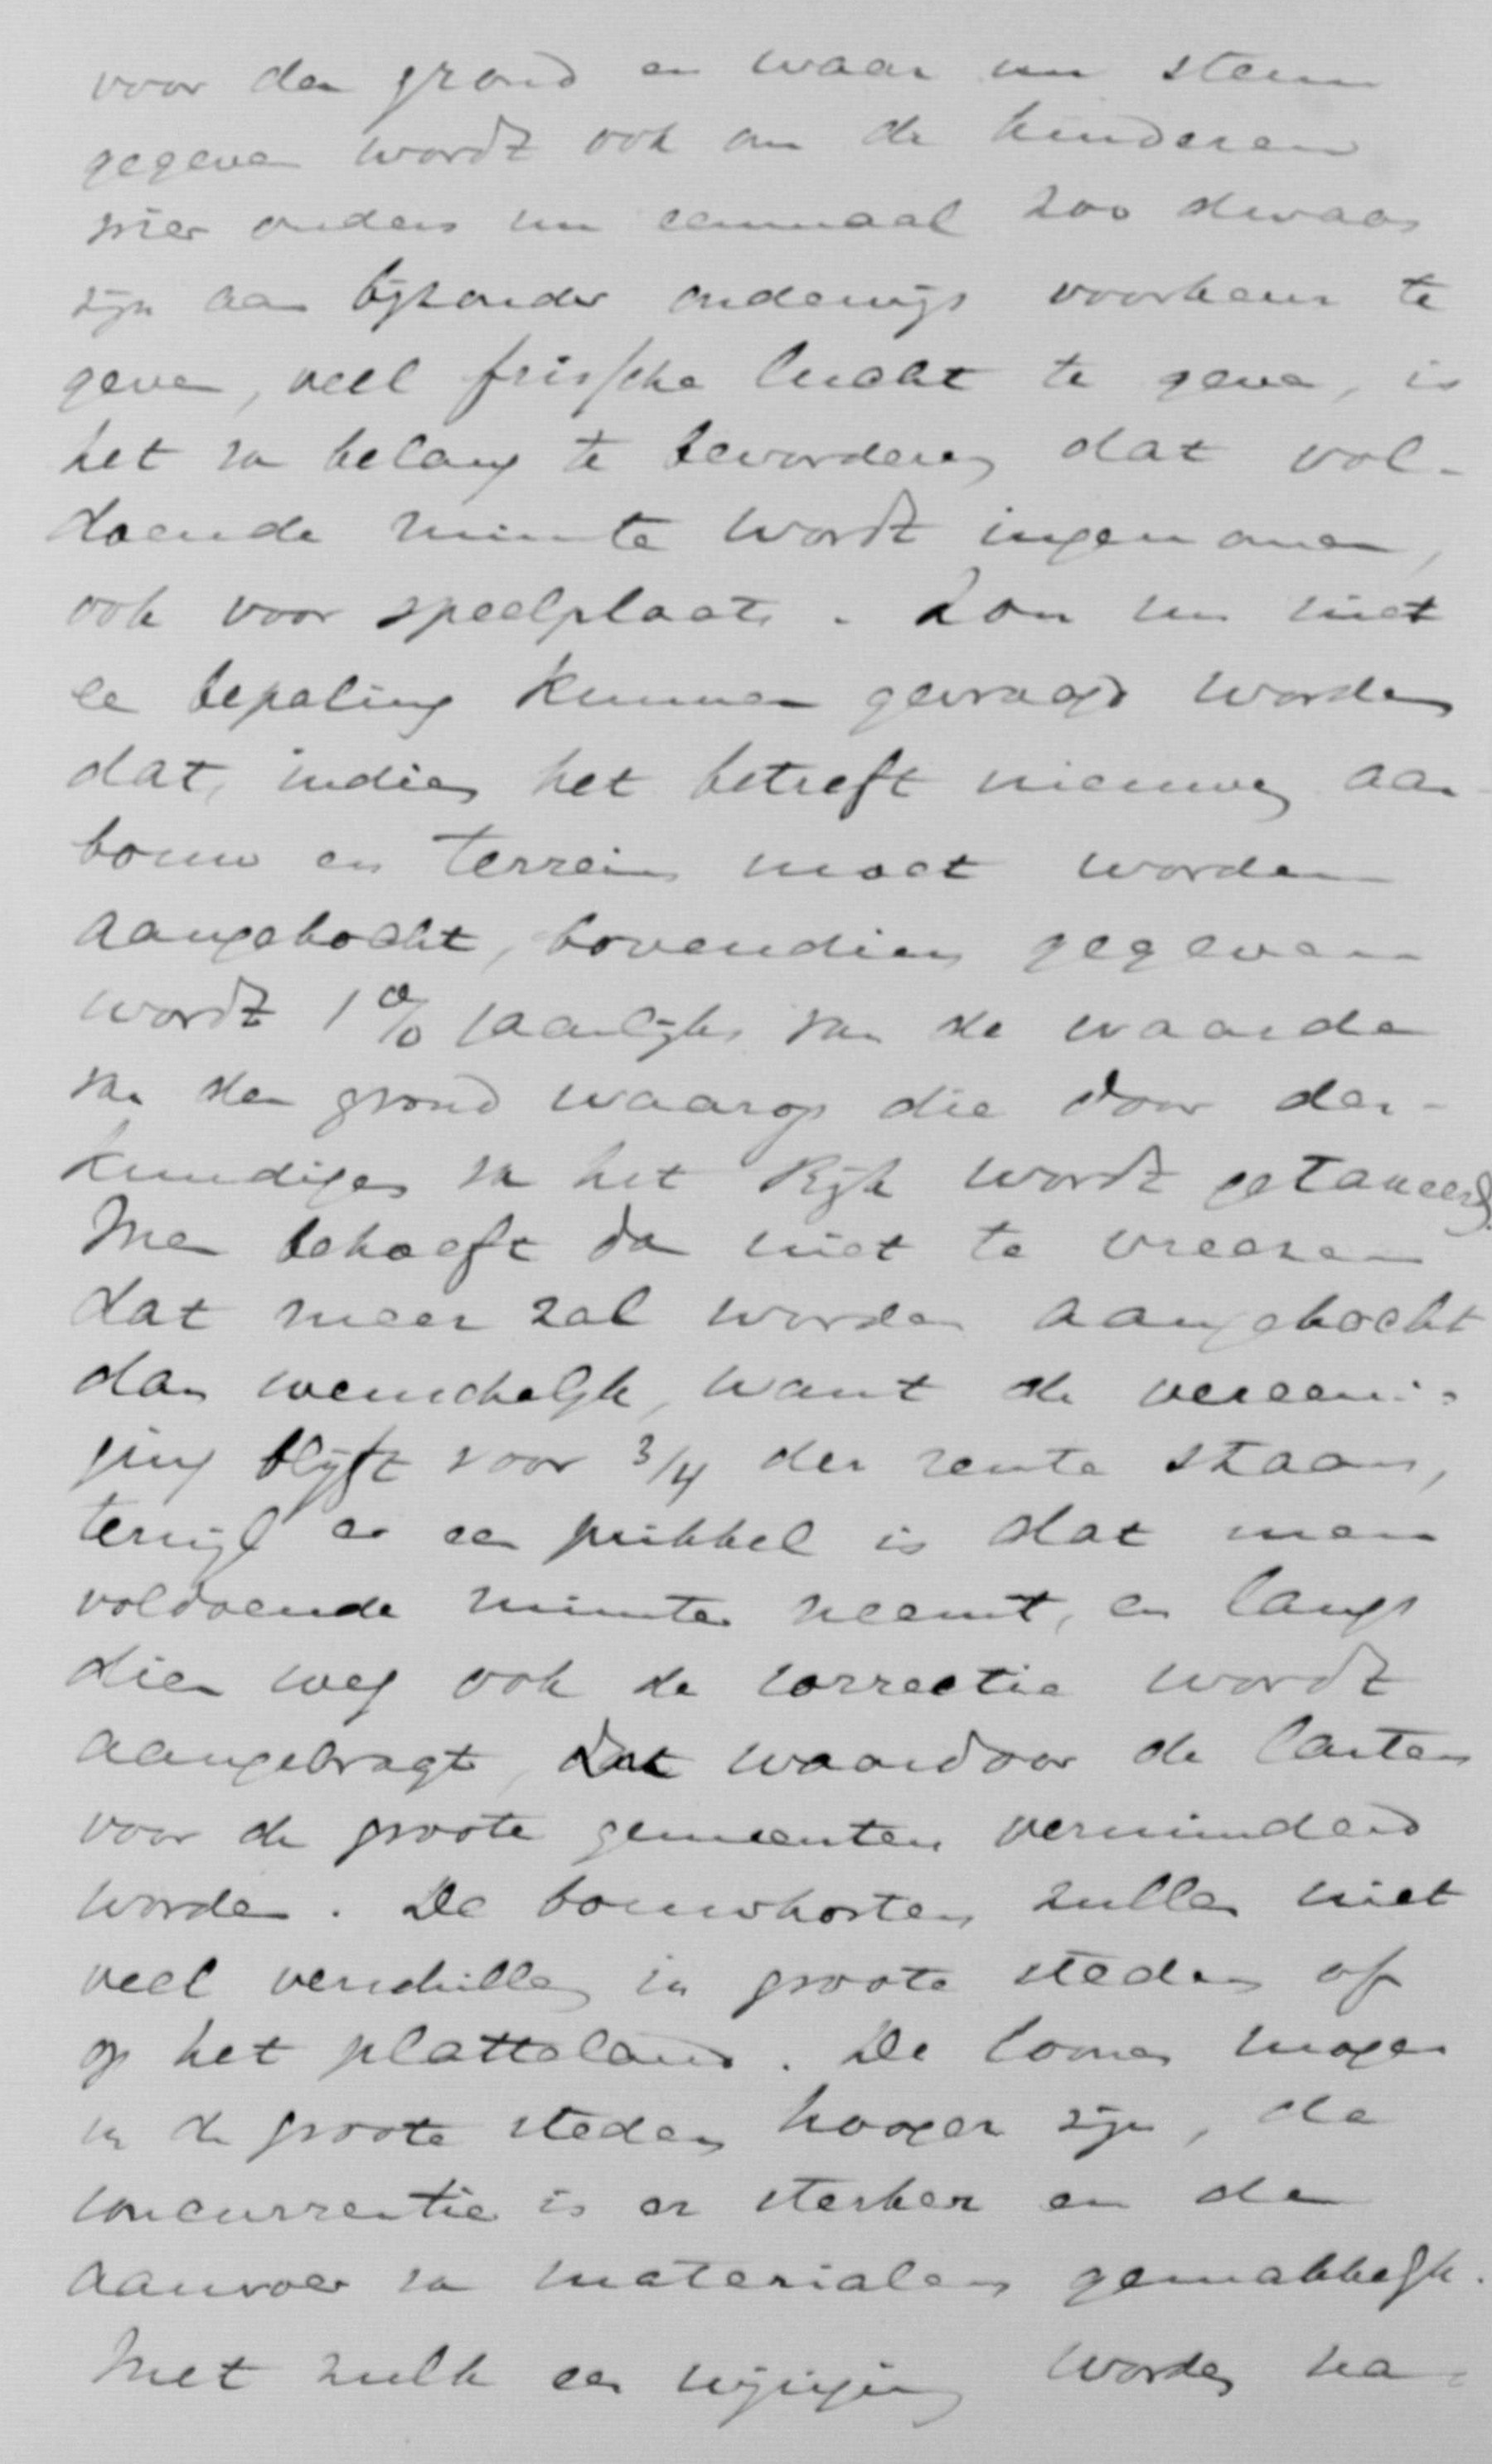 voor den grond en waar nu steun
gegeven wordt ook om de kinderen
wier ouders nu eenmaal zoo dwaas
zijn aan bijzonder onderwijs voorkeur te
geven, veel frissche lucht te geven, is
het van belang te bevorderen dat vol-
doende ruimte wordt ingenomen,
ook voor speelplaats. Zou nu niet
de bepaling kunnen gevraagd worden
dat, indien het betreft nieuwen aan-
bouw en terrein moet worden
aangekocht, bovendien gegeven
wordt 1% jaarlijks van de waarde
van den grond waarop die door des-
kundigen van het Rijk wordt getaxeerd.
Men behoeft dan niet te vreezen
dat meer zal worden aangekocht
dan wenschelijk, want de vereeni-
ging blijft voor 3/4 der rente staan,
terwijl er een prikkel is dat men
voldoende ruimte neemt, en langs
dien weg ook de correctie wordt
aangebragt, dat waardoor de lasten
voor de groote gemeenten verminderd
worden. De bouwkosten zullen niet
veel verschillen in groote steden of
op het platteland. De loonen mogen
in de groote steden hooger zijn, de
concurrentie is er sterker en de
aanvoer van materialen gemakkelijk.
Met zulk een wijziging worden na-